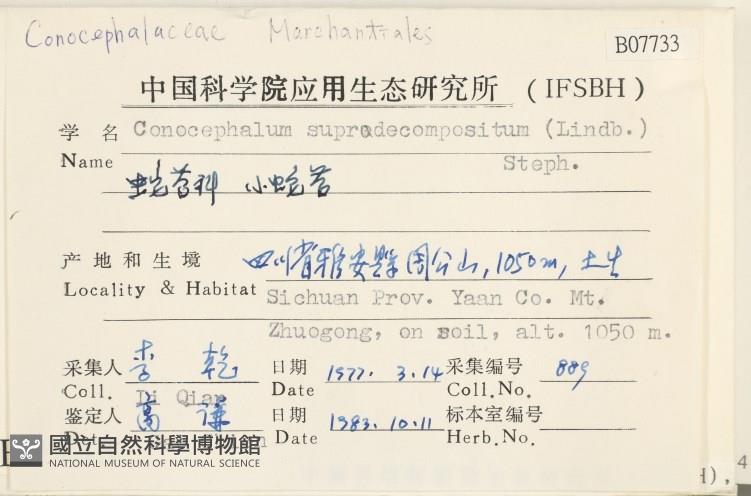 Conocephalaceae Marchantiales
B07733
中国科学院应用生态研究所 (IFSBH)
学名 Conocephalum supradecompositum (Lindb.)
Name Steph.
蛇苔科 小蛇苔
产地和生境 四川省雅安县周公山, 1050m, 土生
Locality & Habitat Sichuan Prov. Yaan Co. Mt.
Zhuogong, on soil, alt. 1050 m.
采集人 李乾 日期 1977. 3.14 采集编号 889
Coll. Li Qian Date Coll.No.
鉴定人 高谦 日期 1983.10.11 标本室编号
Date Herb.No.
國立自然科學博物館
NATIONAL MUSEUM OF NATURAL SCIENCE